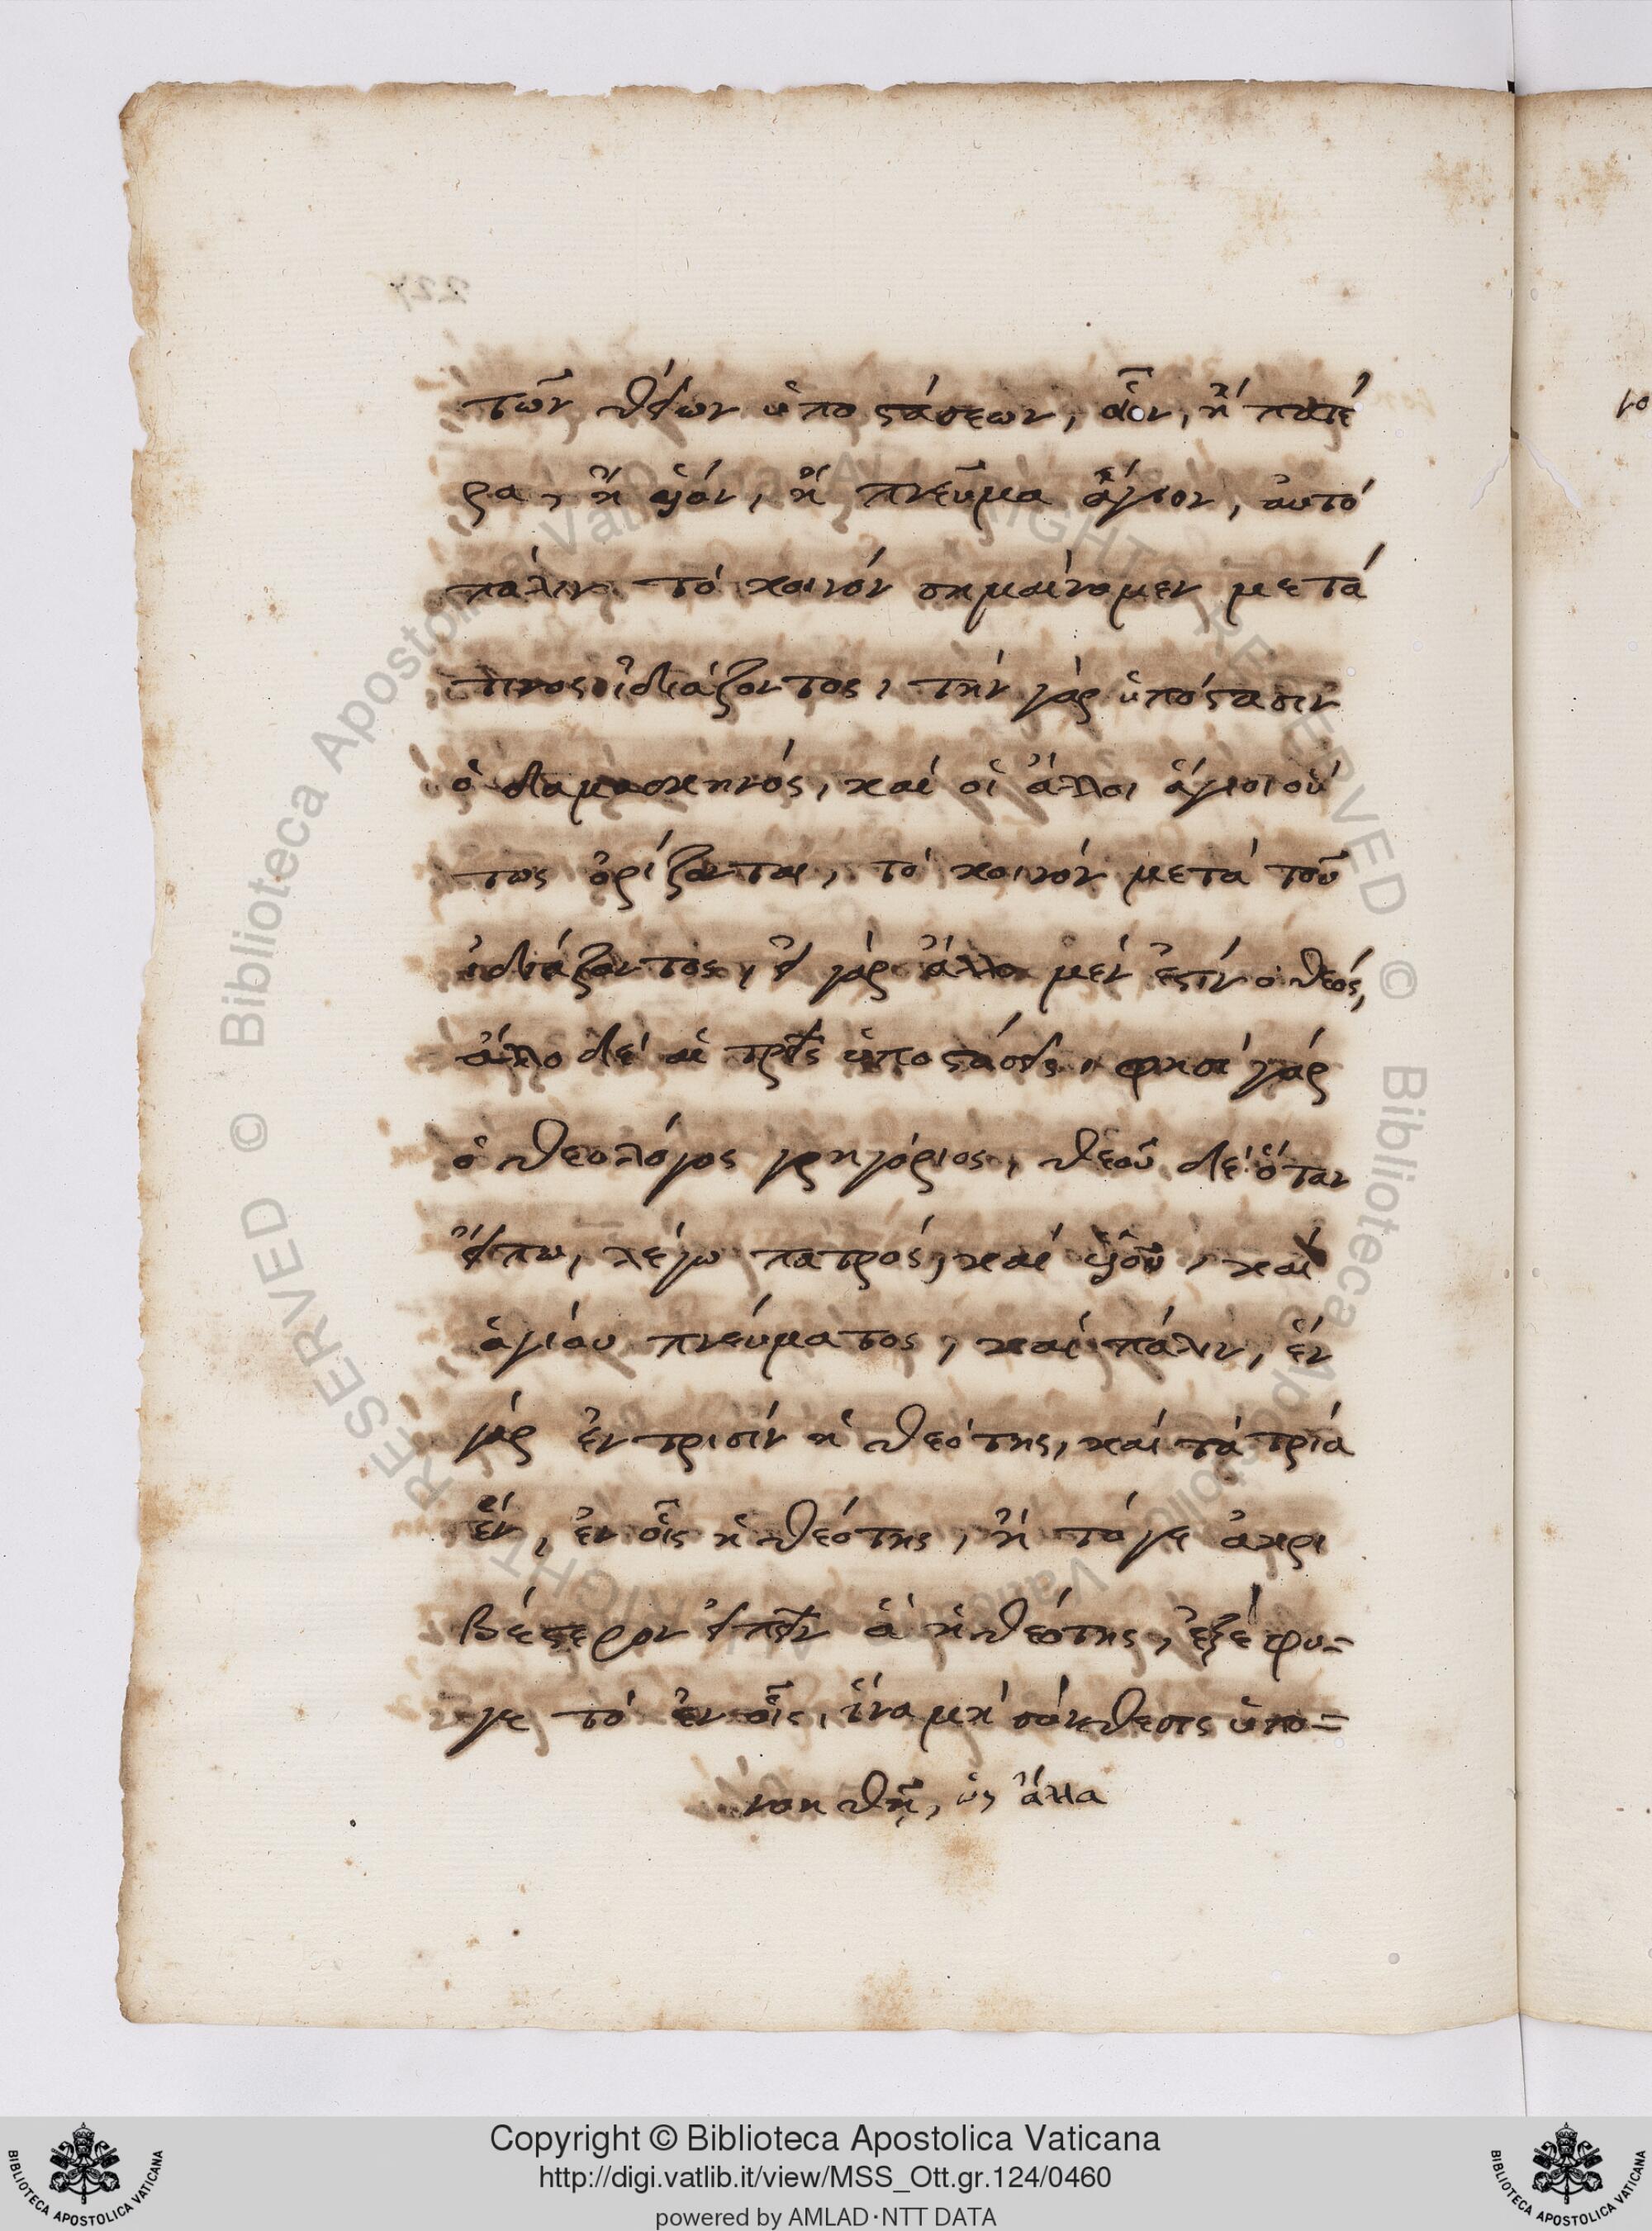 τῶν θείων ὑποστάσεων, οἷον, ἢ πατέ
ρα, ἢ υἱόν, ἢ πνεῦμα ἅγιον, αὐτό
πάλιν τό κοινόν σημαίνομεν μετά
τινος ἰδιάζοντος, τήν γάρ ὑπόστασιν
ὁ δαμασκηνός, καί οἱ ἄλλοι ἅγιοι οὕ
τως ὁρίζονται, τό κοινόν μετά τοῦ
ἰδιάζοντος, εἰ γάρ ἄλλο μέν ἐστίν ὁ θεός,
ἄλλο δέ αἱ τρεῖς ὑποστάσεις, φησί γάρ
ὁ θεολόγος γρηγόριος, θεοῦ δέ ὅταν
εἴπω, λέγω πατρός, καί υἱοῦ, καί
ἁγίου πνεύματος, καί πάλιν, ἕν
γάρ ἐν τρισίν ἡ θεότης, καί τά τρία
ἕν, ἐν οἷς ἡ θεότης, ἢ τόγε ἀκρι
βέστερον εἰπεῖν ἃ ἡ θεότης, ἐξέφυ=
γε τό ἐν οἷς, ἵνα μή σύνθεσις ὑπο=
νοηθῇ, ὡς ἄλλα
227
Copyright © Biblioteca Apostolica Vaticana
http://digi.vatlib.it/view/MSS_Ott.gr.124/0460
powered by AMLAD·NTT DATA